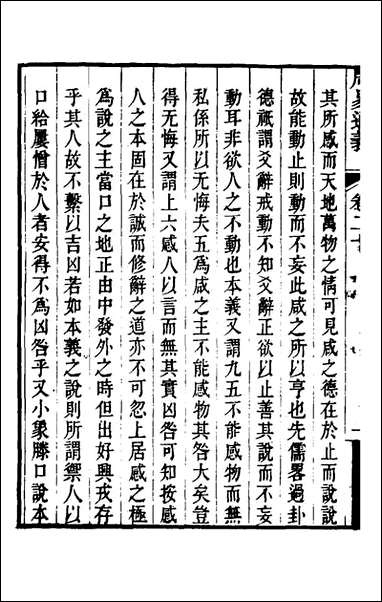 其所感而天地萬物之情可見咸之德在於止而說說
故能動止則動而不妄此咸之所以亨也先儒畧過卦
德祇謂爻辭戒動不知爻辭正欲以止善其說而不妄
動耳非欲人之不動也本義又謂九五不能感物而無
私係所以无悔夫五為咸之主不能感物其咎大矣豈
得无悔又謂上六感人以言而無其實凶咎可知按感
人之本固在於誠而修辭之道亦不可忽上居咸之極
為說之主當口之地正由中發外之時但出好興戎存
乎其人故不繫以吉凶若如本義之說則所謂禦人以
口給屢憎於人者安得不為凶咎乎又小象滕口說本
卷二